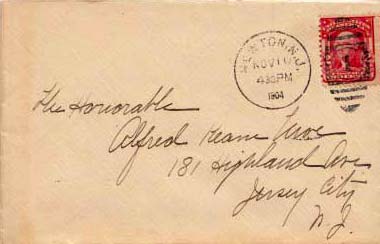 NEWTON, N.J.
NOV 10
430 PM
1904
The Honorable
Alfred Keane
181 Highland Ave
Jersey City
N.J.